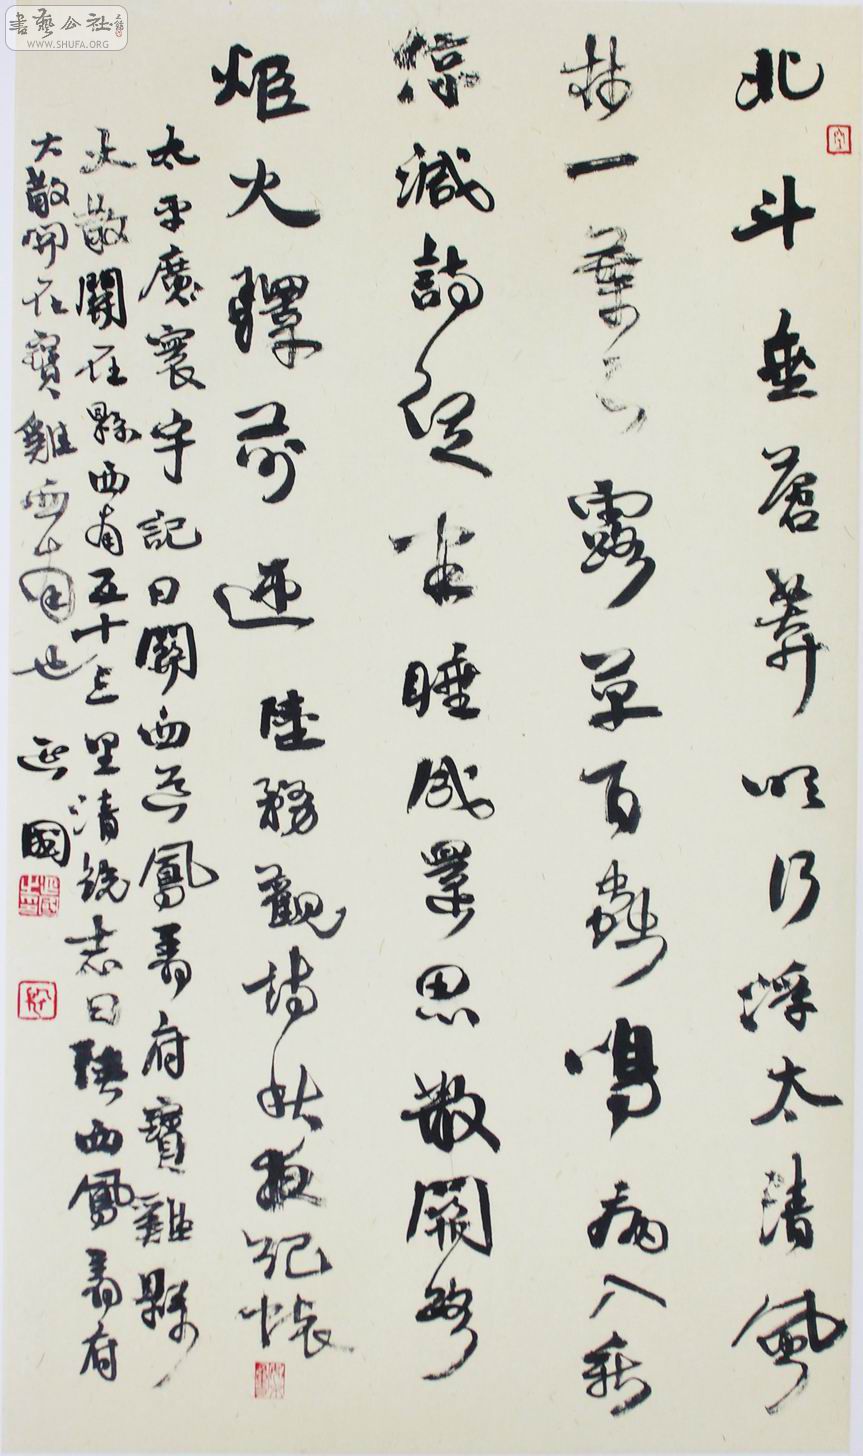 書藝公社
WWW.SHUFA.ORG
北斗垂蒼莽明河浮太清風
林一葉下露草百蟲鳴病入新
涼減詩從半睡成還思散關路
炬火驛前迎 陸務觀詩秋夜紀懷
太平廣寰宇記曰關西道鳳翔府寶雞縣
大散關在縣西南五十二里清統志曰陝西鳳翔府
大散關在寶雞西南也 延國